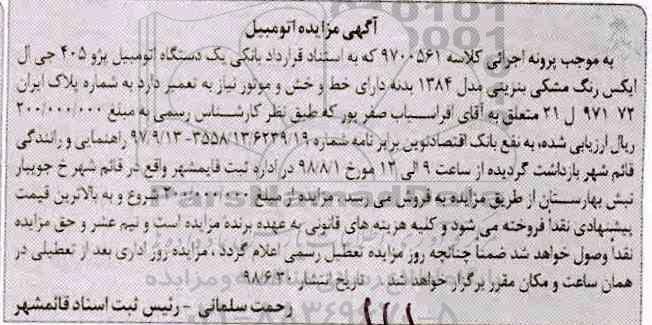 آگهی مزایده اتومبیل
به موجب پرونه اجرائی کلاسه ۹۷۰۰۵۶۱ که به استناد قرارداد بانکی یک دستگاه اتومبیل پژو ۴۰۵ جی ال
ایکس رنگ مشکی بنزینی مدل ۱۳۸۴ بدنه دارای خط و خش و موتور نیاز به تعمیر دارد به شماره پلاک ایران
۷۲ ۹۷۱ ل ۲۱ متعلق به آقای افراسیاب صفرپور که طبق نظر کارشناس رسمی به مبلغ ۲۰۰/۰۰۰/۰۰۰
ریال ارزیابی شده، به نفع بانک اقتصادنوین برابر نامه شماره ۳۵۵۸/۱۳/۶۲۳۹/۱۹-۹۷/۹/۱۳ راهنمایی و رانندگی
قائم شهر بازداشت گردیده از ساعت ۹ الی ۱۲ مورخ ۹۸/۸/۱ در اداره ثبت قایمشهر واقع در قائم شهر خ جویبار
نبش بهارستان از طریق مزایده به فروش می رسد . مزایده از مبلغ ۲۰۰/۰۰۰/۰۰۰ شروع و به بالاترین قیمت
پیشنهادی نقداً فروخته می شود و کلیه هزینه های قانونی به عهده برنده مزایده است و نیم عشر و حق مزایده
نقداً وصول خواهد شد ضمناً چنانچه روز مزایده تعطیل رسمی اعلام گردد ، مزایده روز اداری بعد از تعطیلی در
همان ساعت و مکان مقرر برگزار خواهد شد . تاریخ انتشار ۹۸/۶/۳۰
رحمت سلمانی - رئیس ثبت اسناد قائمشهر